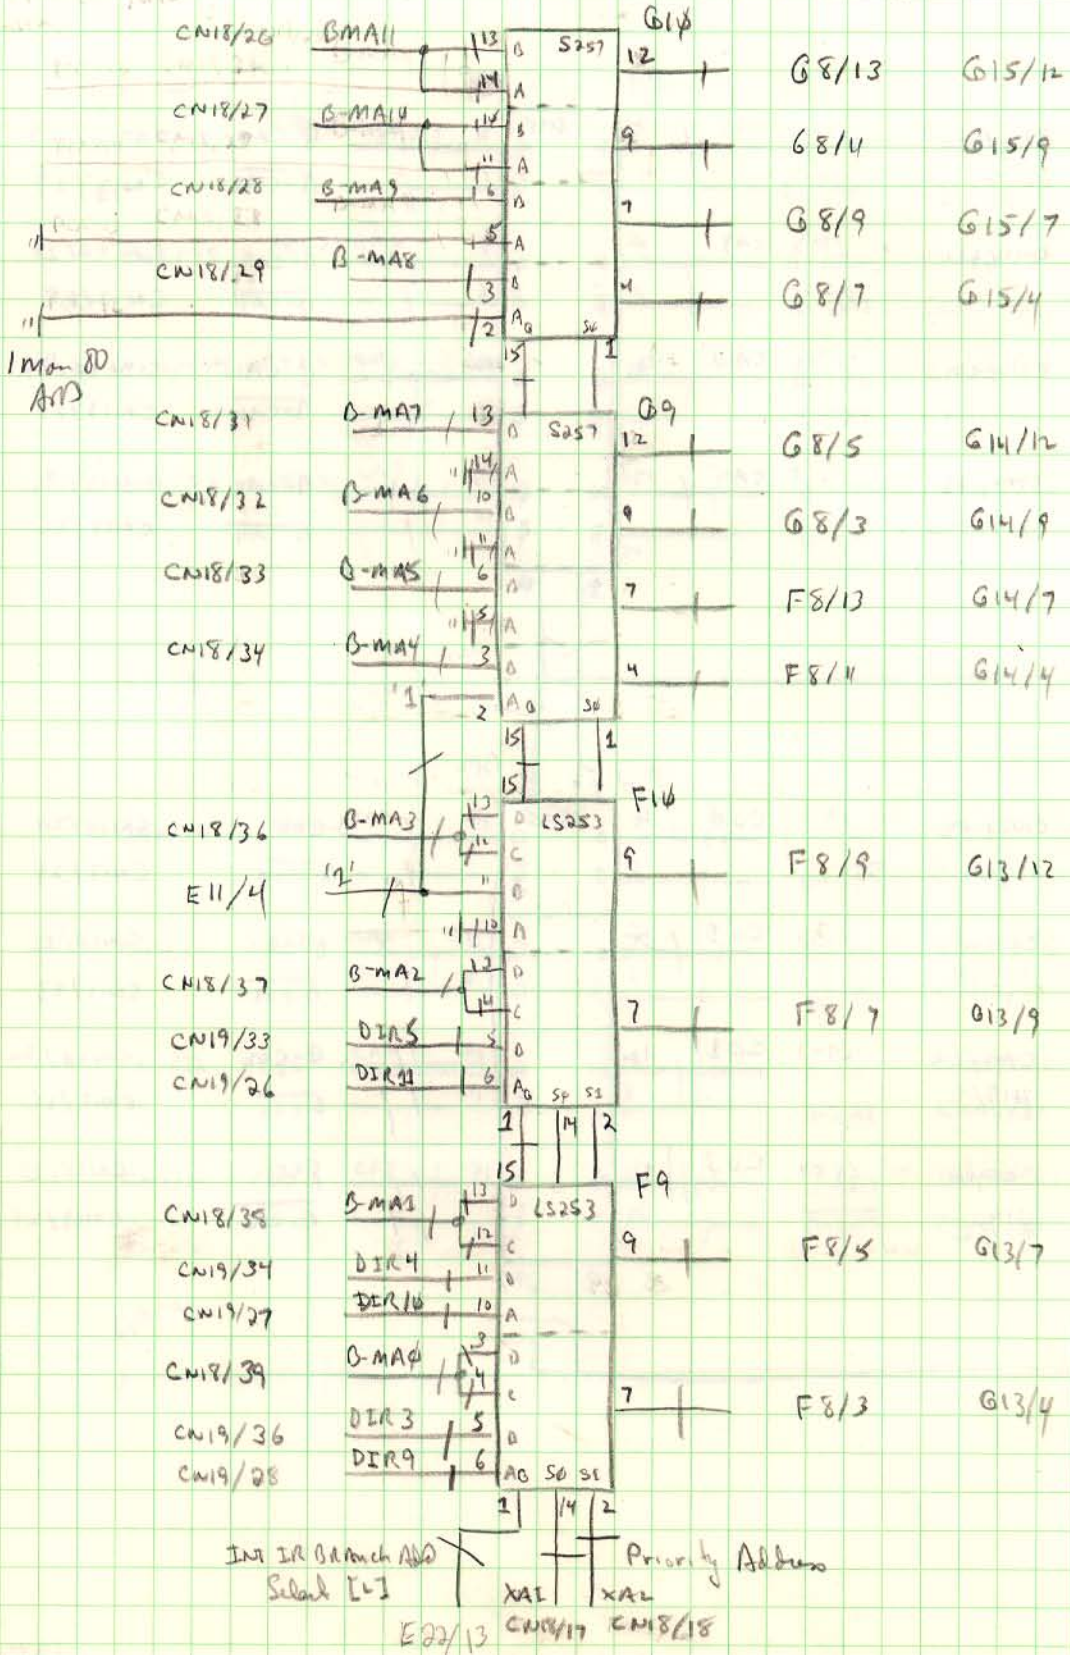 G10
CN18/26 BMA11 13 B S257 12 G8/13 G15/12
14 A
CN18/27 B-MA10 10 B 9 G8/11 G15/9
11 A
CN18/28 B-MA9 6 B 7 G8/9 G15/7
5 A
CN18/29 B-MA8 3 B 4 G8/7 G15/4
2 A G S0
15 1
1 Mar 80
G9
CN18/31 B-MA7 13 B S257 12 G8/5 G14/12
14 A
CN18/32 B-MA6 10 B 9 G8/3 G14/9
11 A
CN18/33 B-MA5 6 B 7 F8/13 G14/7
5 A
CN18/34 B-MA4 3 B 4 F8/11 G14/4
'1' 2 A G S0
15 1
15
F10
CN18/36 B-MA3 13 D LS253
12 C 9 F8/9 G13/12
E11/4 '1' 11 B
10 A
CN18/37 B-MA2 D
4 C 7 F8/7 G13/9
CN19/33 DIR5 5 B
CN19/26 DIR11 6 A G S0 S1
1 14 2
15
F9
CN18/38 B-MA1 13 D LS253
12 C 9 F8/5 G13/7
CN19/34 DIR4 11 B
CN19/27 DIR10 10 A
CN18/39 B-MA0 3 D
4 C 7 F8/3 G13/4
CN19/36 DIR3 5 B
CN19/28 DIR9 6 A G S0 S1
1 14 2
INT IR Branch ADD Priority Address
Select [L] XA1 XA2
E22/13 CN18/17 CN18/18